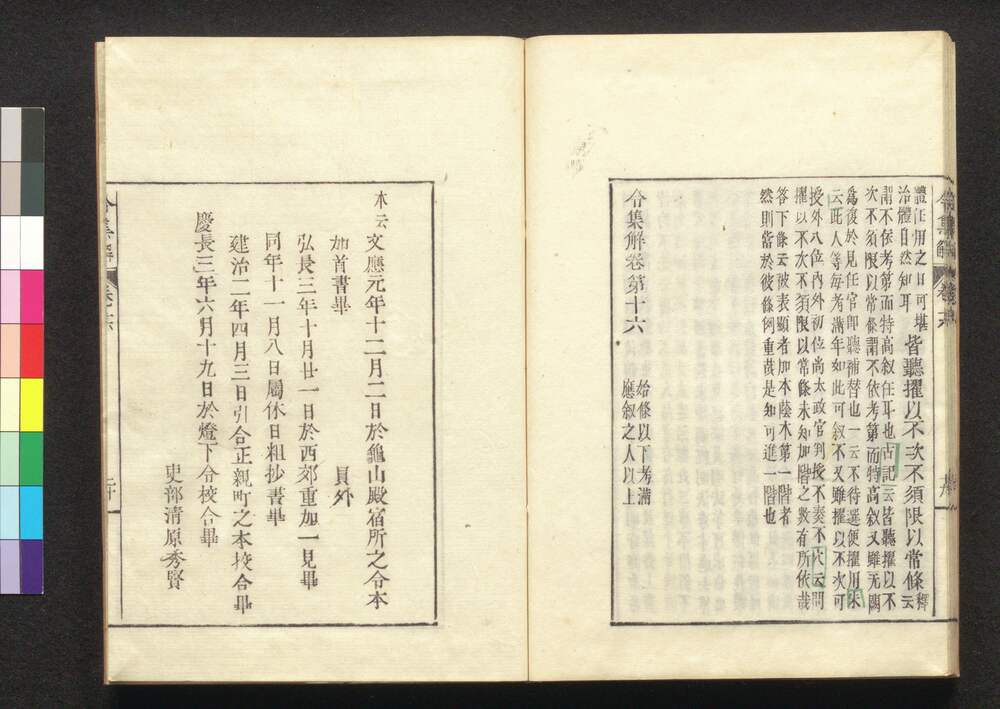 體任用之日可堪
治體自然知耳
皆聽擢以不次不須限以常條
釋云
謂不依考第而特高叙任耳也古記云皆聽擢以不
次不須限以常條謂不依考第而特高叙又雖无闕
為復於見任官即聽補替也一云不待選便擢用朱
云此人等每考滿年如此可叙不又雖擢以不次可
授外八位內外初位尚太政官判授不奏不穴云問
擢以不次不須限以常條未知加階之數有所依哉
答下條云被表顯者加本蔭本第一階者
然則當於彼條例重黃是知可進一階也
令集解卷第十六
始條以下考滿
應叙之人以上
本云文應元年十二月二日於龜山殿宿所之令本
加首書畢
員外
弘長三年十月廿一日於西郊重加一見畢
同年十一月八日屬休日粗抄書畢
建治二年四月三日引合正親町之本挍合畢
慶長三年六月十九日於燈下令挍合畢
吏部清原秀賢
令集解